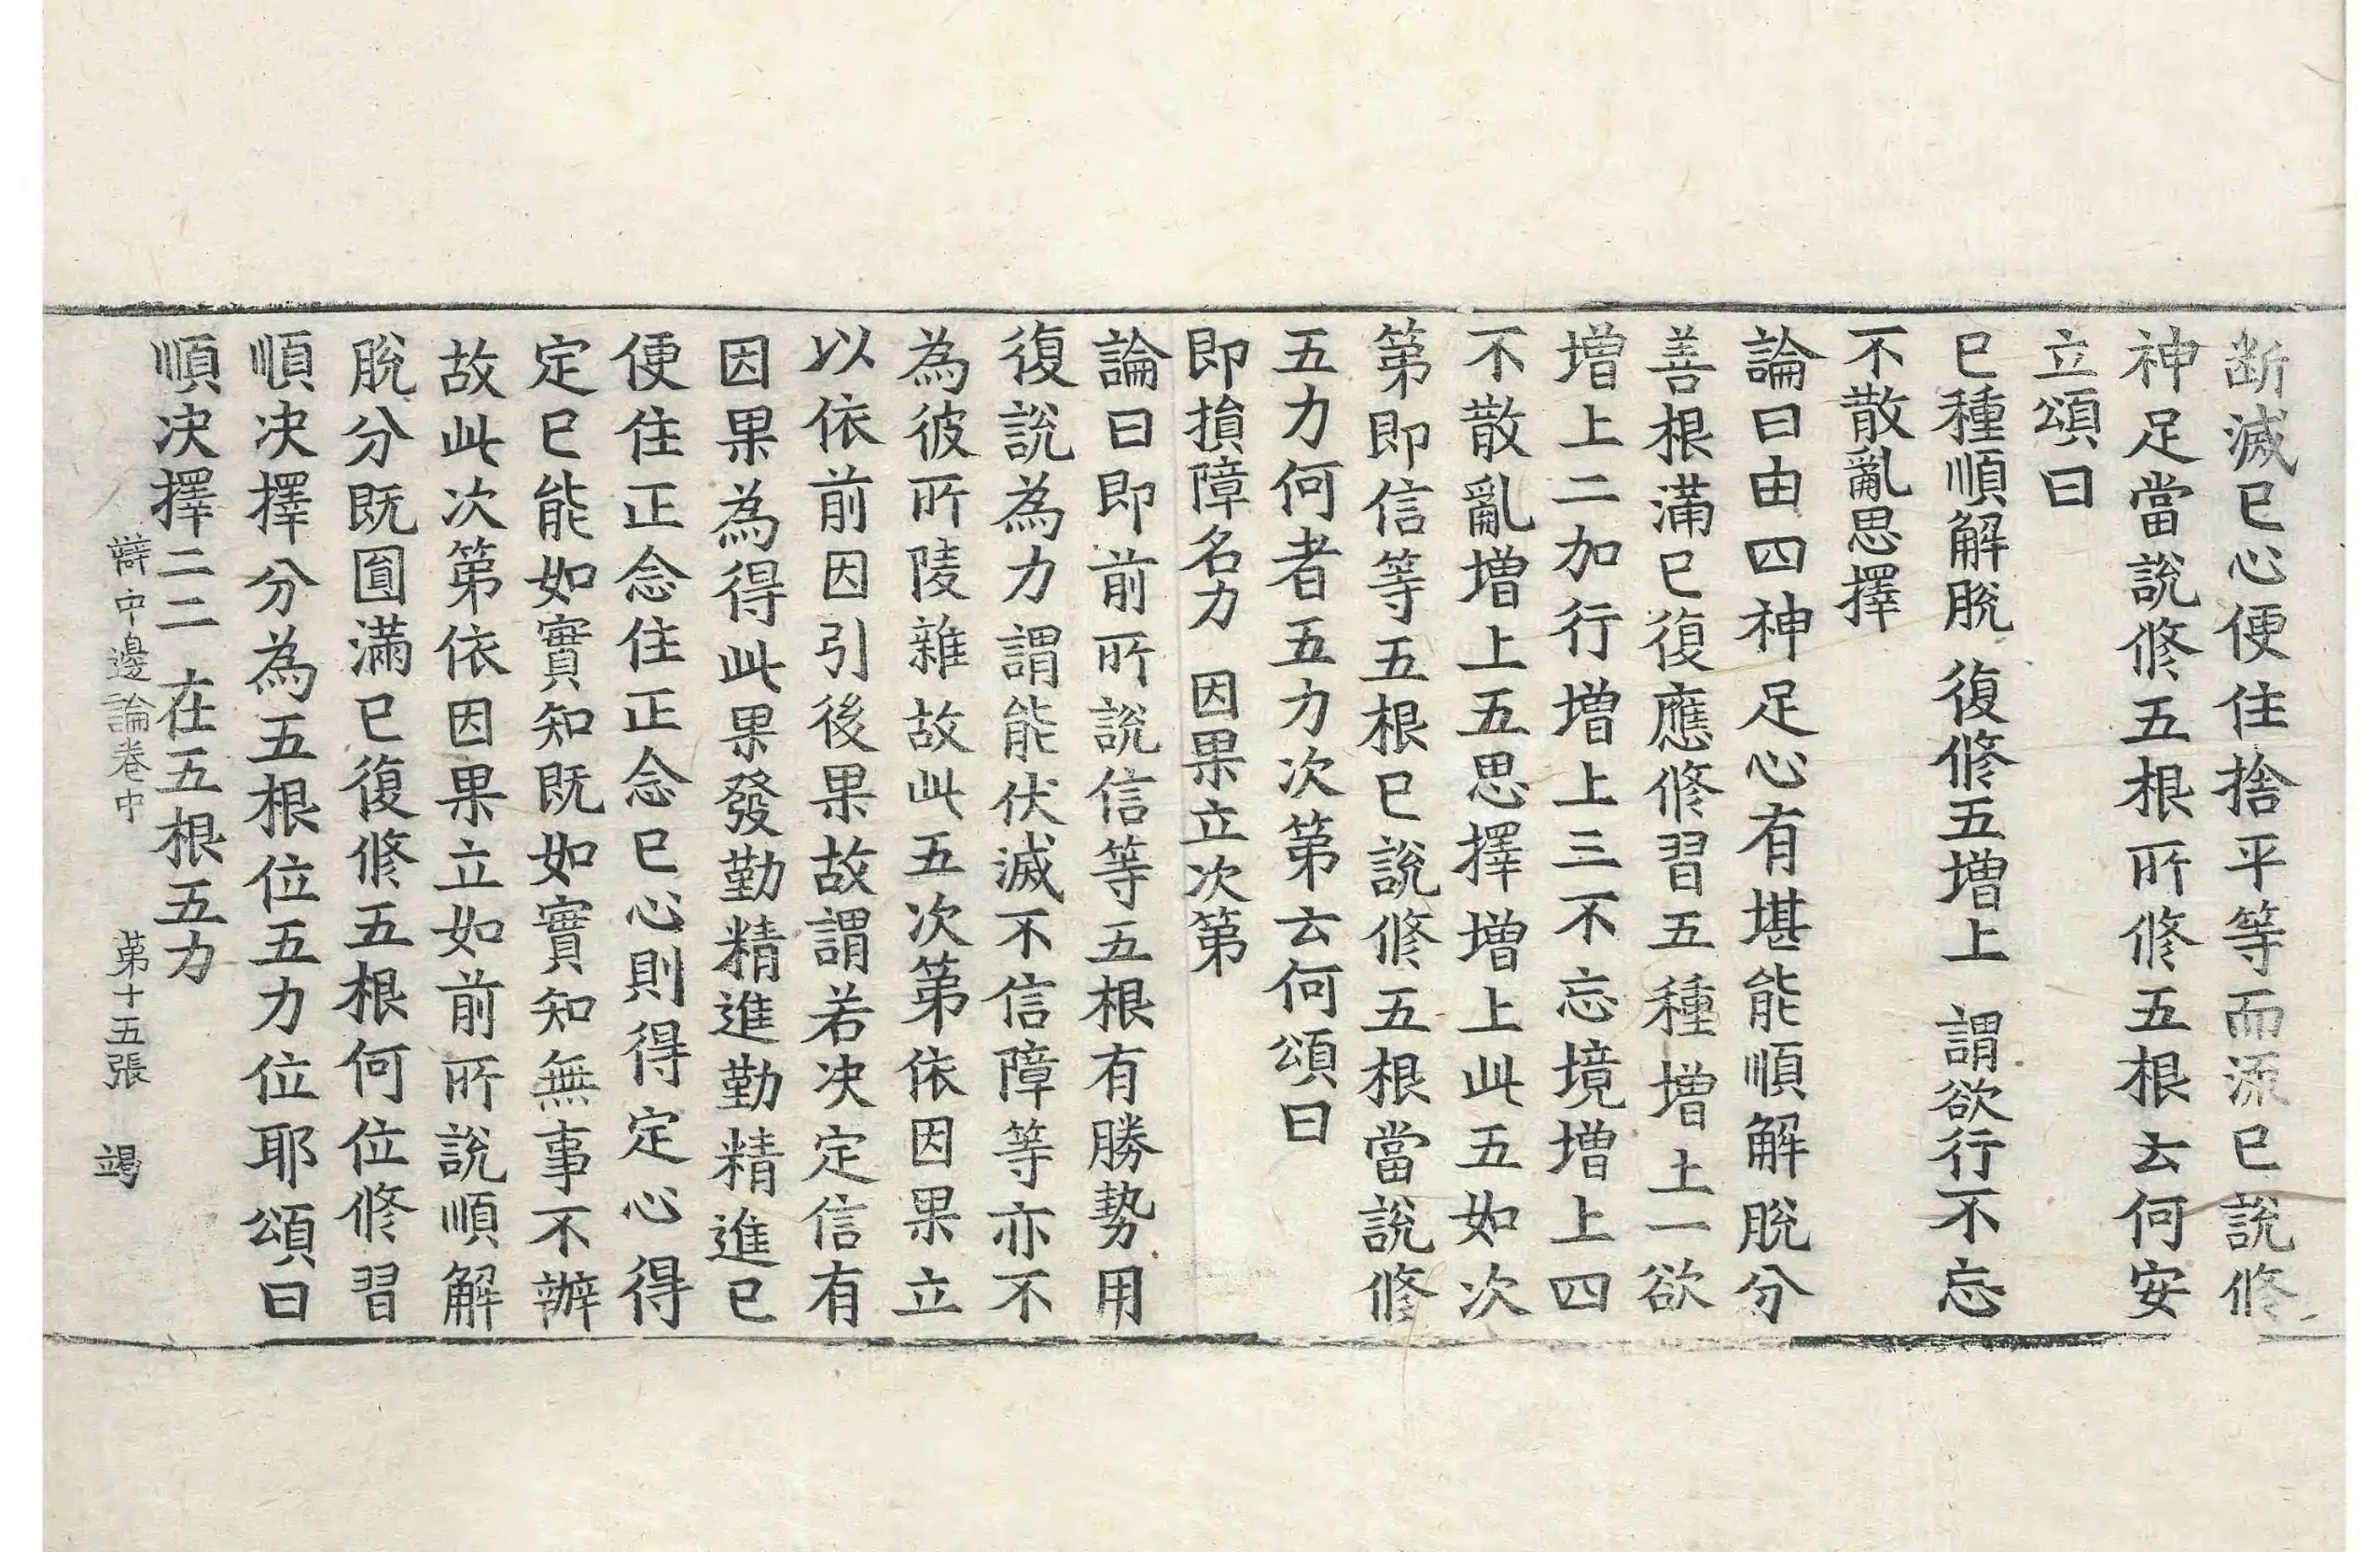 断滅已心便住捨平等而流已說修
神足當說修五根所修五根云何安
立頌曰
已種順解脫 復修五增上 謂欲行不忘
不散亂思擇
論曰由四神足心有堪能順解脫分
善根滿已復應修習五種增上一欲
增上二加行增上三不忘境增上四
不散亂增上五思擇增上此五如次
第即信等五根已說修五根當說修
五力何者五力次第云何頌曰
即損障名力 因果立次第
論曰即前所說信等五根有勝勢用
復說為力謂能伏滅不信障等亦不
為彼所陵雜故此五次第依因果立
以依前因引後果故謂若决定信有
因果為得此果發勤精進勤精進已
便住正念住正念已心則得定心得
定已能如實知既如實知無事不辦
故此次第依因果立如前所說順解
脫分既圓滿已復修五根何位修習
順决擇分為五根位五力位耶頌曰
順决擇二二 在五根五力
辯中邊論卷中 第十五張 竭